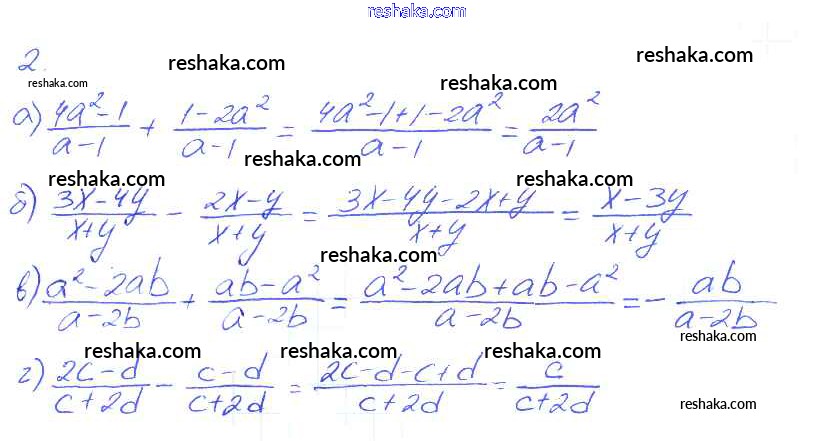 reshaka.com
2.
reshaka.com
reshaka.com
reshaka.com
reshaka.com
а) (4a²-1)/(a-1) + (1-2a²)/(a-1) = (4a²-1+1-2a²)/(a-1) = 2a²/(a-1)
reshaka.com
reshaka.com
reshaka.com
б) (3x-4y)/(x+y) - (2x-y)/(x+y) = (3x-4y-2x+y)/(x+y) = (x-3y)/(x+y)
reshaka.com
в) (a²-2ab)/(a-2b) + (ab-a²)/(a-2b) = (a²-2ab+ab-a²)/(a-2b) = - ab/(a-2b)
reshaka.com
reshaka.com
reshaka.com
reshaka.com
г) (2c-d)/(c+2d) - (c-d)/(c+2d) = (2c-d-c+d)/(c+2d) = c/(c+2d)
reshaka.com